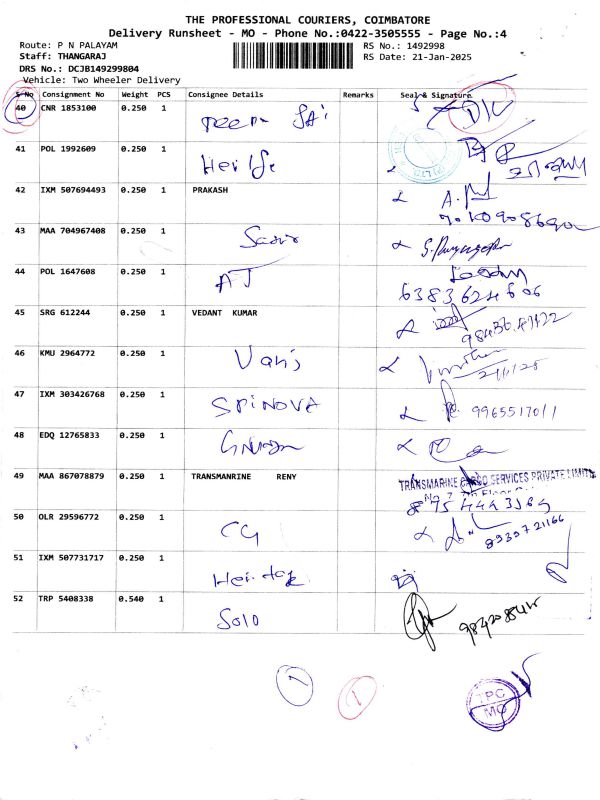 THE PROFESSIONAL COURIERS, COIMBATORE
Delivery Runsheet - MO - Phone No.:0422-3505555 - Page No.:4
Route: P N PALAYAM
RS No.: 1492998
Staff: THANGARAJ
RS Date: 21-Jan-2025
DRS No.: DCJB149299804
Vehicle: Two Wheeler Delivery
S No Consignment No Weight PCS Consignee Details Remarks Seal & Signature
40 CNR 1853100 0.250 1 SAi D/C
41 POL 1992609 0.250 1
42 IXM 507694493 0.250 1 PRAKASH
43 MAA 704967408 0.250 1
44 POL 1647608 0.250 1 AJ
6383624606
45 SRG 612244 0.250 1 VEDANT KUMAR
46 KMU 2964772 0.250 1
47 IXM 303426768 0.250 1 SPiNOVA 9965517011
48 EDQ 12765833 0.250 1
49 MAA 867078879 0.250 1 TRANSMANRINE RENY TRANSMARINE CARGO SERVICES PRIVATE LIMITED
50 OLR 29596772 0.250 1 CG 8939721166
51 IXM 507731717 0.250 1
52 TRP 5408338 0.540 1 Solo
TPC
MO